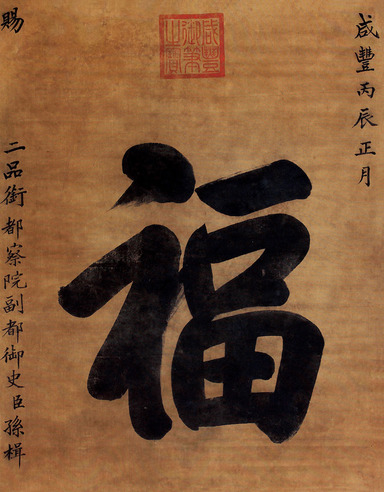 咸豐丙辰正月
咸豐
御筆
之寶
福
賜
二品銜都察院副都御史臣孫楫